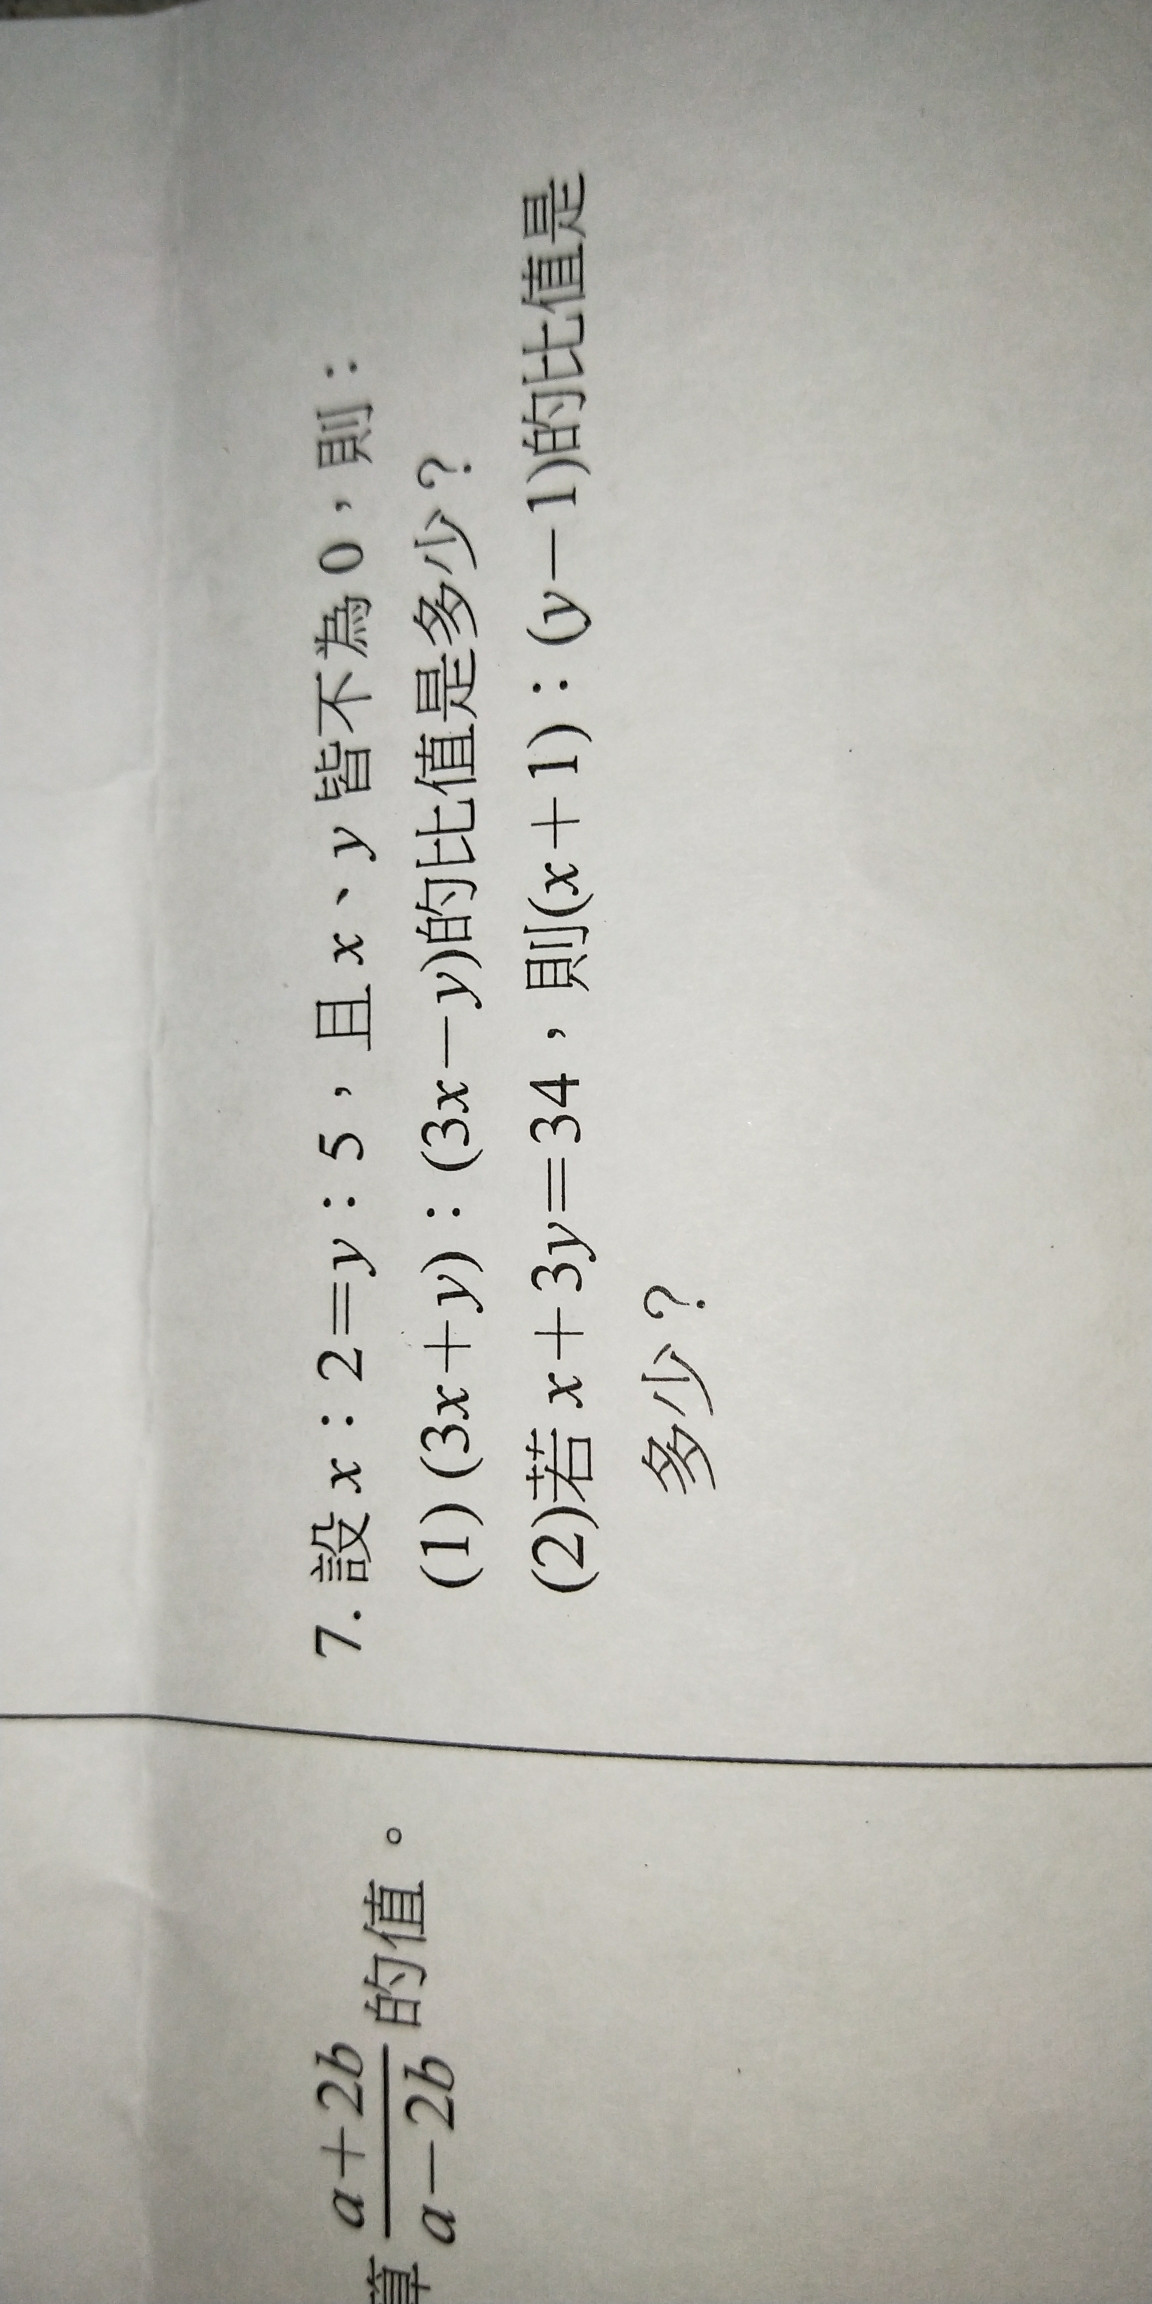 算 a+2b/a−2b 的值。
7. 設 x：2=y：5，且 x、y 皆不為 0，則：
(1) (3x+y)：(3x−y)的比值是多少？
(2)若 x+3y=34，則(x+1)：(y−1)的比值是
多少？